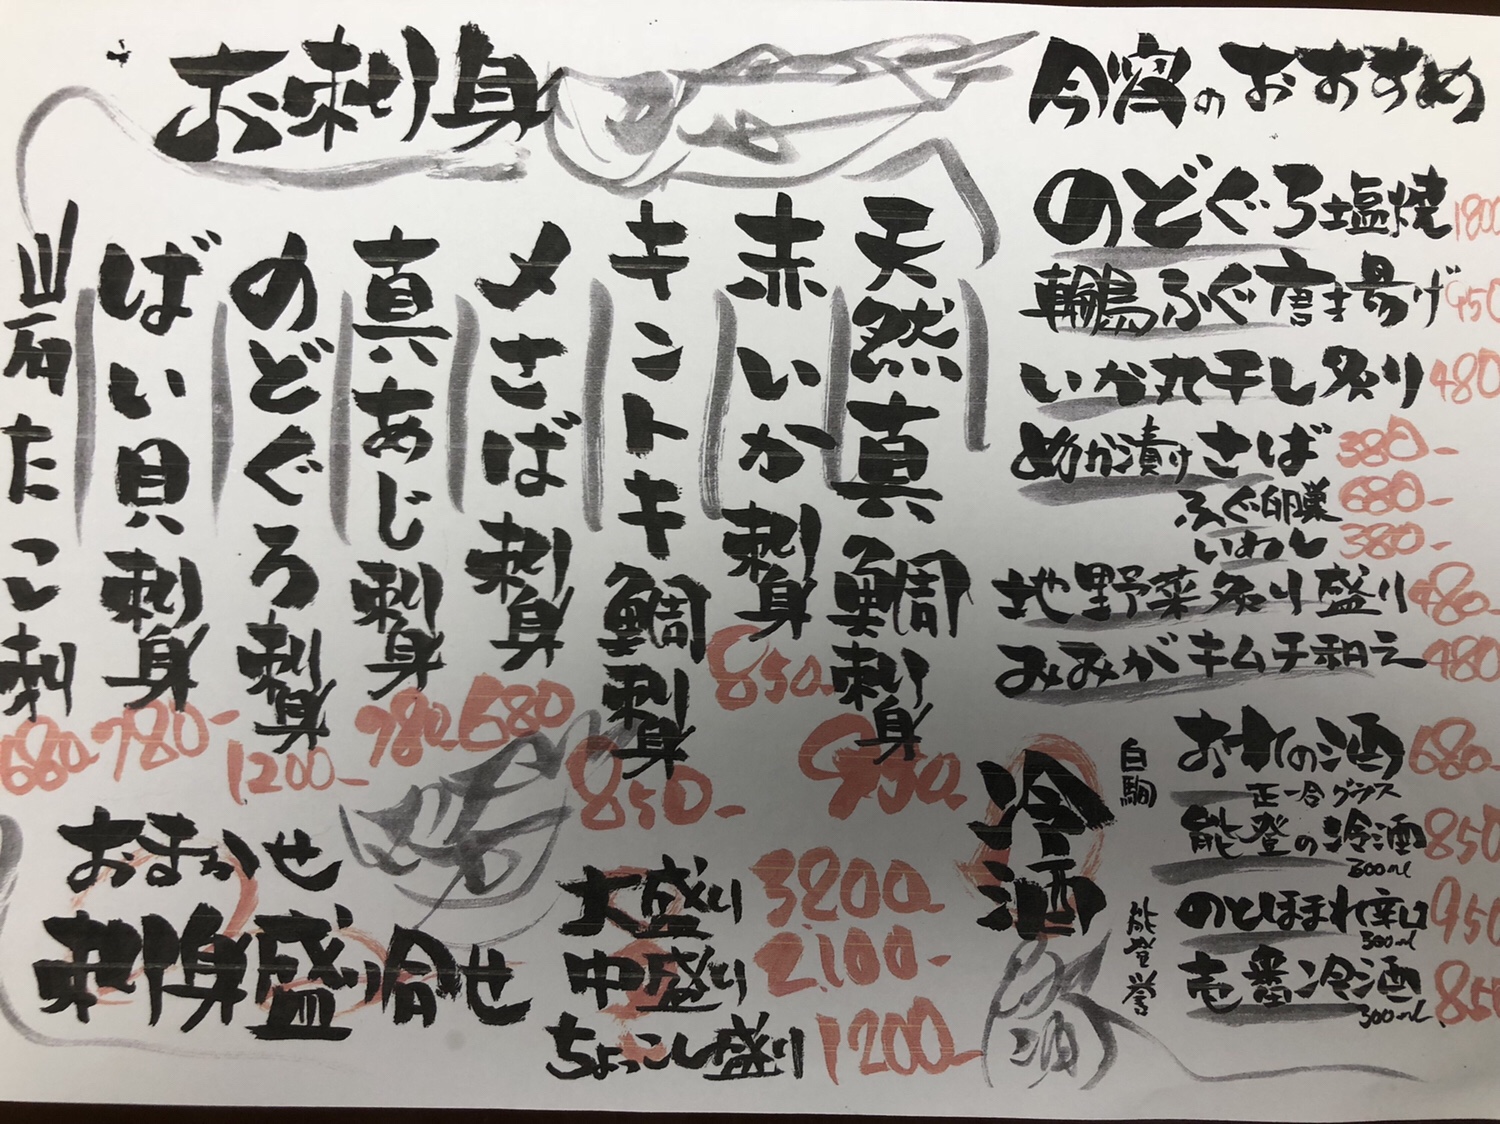 お刺身
天然真鯛刺身
950-
赤いか刺身
850-
キントキ鯛刺身
850-
〆さば刺身
680
真あじ刺身
780-
のどぐろ刺身
1200-
ばい貝刺身
780-
岩たこ刺
680-
おまかせ
刺身盛り合せ
大盛り 3200-
中盛り 2.100-
ちょっこし盛り 1200-
今宵のおすすめ
のどぐろ塩焼 1800
輪島ふぐ唐き揚げ 950
いか丸干し炙り 480
ぬか漬けさば 380-
ふぐ卵巣 680-
いわし 380-
地野菜炙り盛り 480-
みみがキムチ和え 480
冷酒
白駒
の酒 680-
正一合グラス
能登の冷酒 850
300ml
能登誉
のとほまれ辛口 950
300ml
壱番冷酒 850
300ml
酒